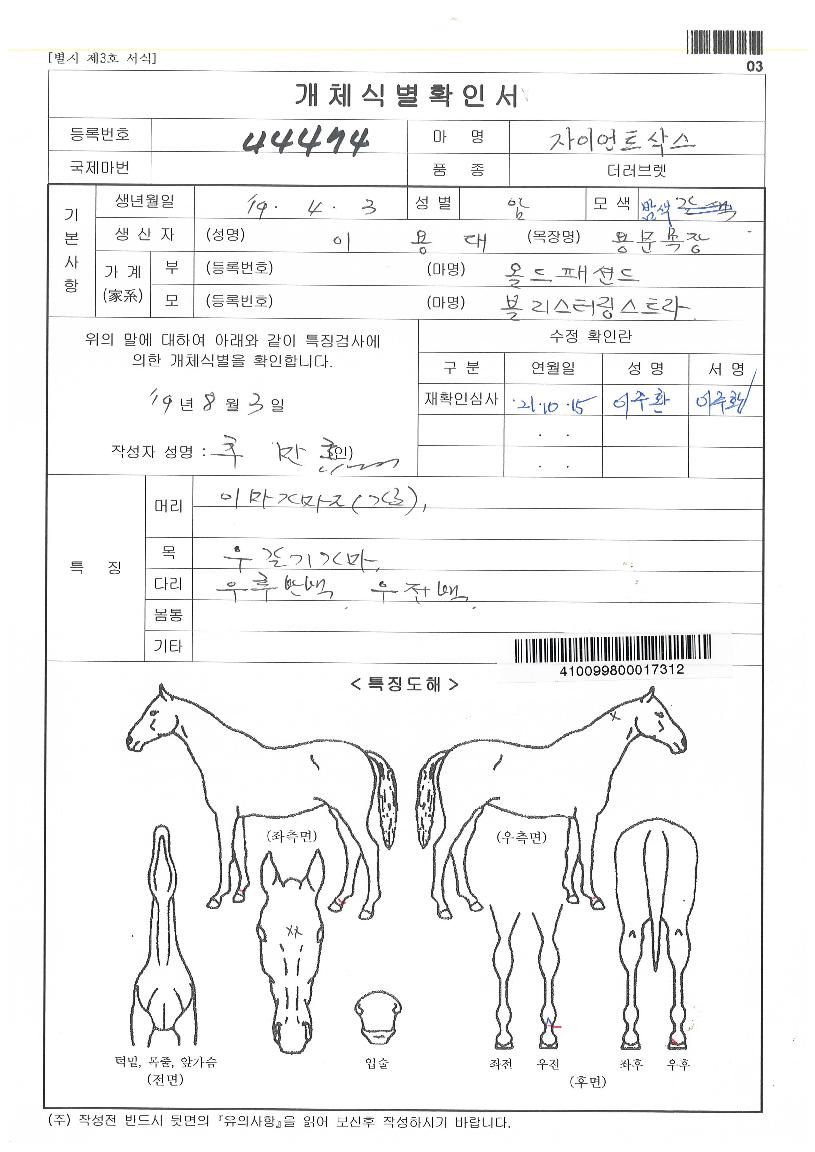 [별시 제3호 서식]
03
개체식별확인서
등록번호 44474 마 명 자이언트삭스
국제마번 품 종 더러브렛
기본사항
생년월일 '19. 4. 3 성 별 암 모 색 밤색
생 산 자 (성명) 이 용 대 (목장명) 용문목장
가 계 (家系) 부 (등록번호) (마명) 올드패션드
모 (등록번호) (마명) 블리스터링스트라
위의 말에 대하여 아래와 같이 특징검사에
의한 개체식별을 확인합니다.
'19 년 8 월 3 일
작성자 성명 : 추 만 (인)
수정 확인란
구 분 연월일 성 명 서 명
재확인심사 '21.10.15 이주환 이주환
. .
. .
특 징
머리 이마가마2(상),
목 우 갈기가마,
다리 우후반백, 우전백,
몸통
기타
410099800017312
< 특징도해 >
(좌측면) (우측면)
턱밑, 목줄, 앞가슴
(전면)
입술
좌전 우전 좌후 우후
(후면)
(주) 작성전 반드시 뒷면의 『유의사항』을 읽어 보신후 작성하시기 바랍니다.